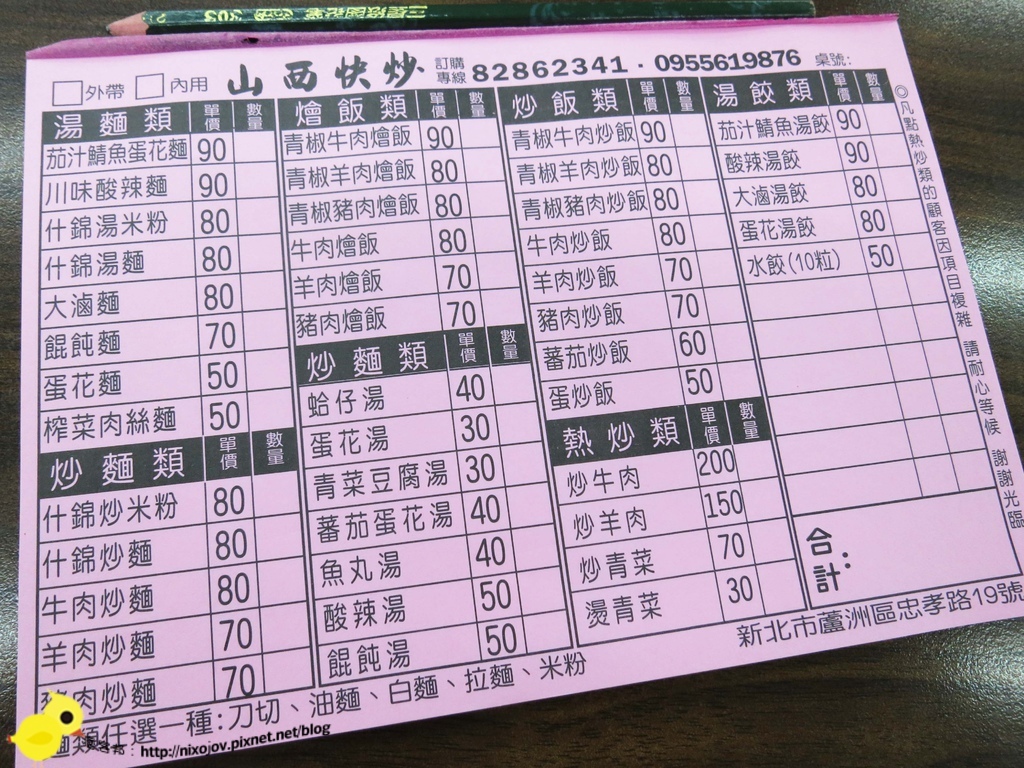 □外帶 □內用 山西快炒 訂購專線 82862341 · 0955619876 桌號:
湯麵類 單價 數量
茄汁鯖魚蛋花麵 90
川味酸辣麵 90
什錦湯米粉 80
什錦湯麵 80
大滷麵 80
餛飩麵 70
蛋花麵 50
榨菜肉絲麵 50
炒麵類 單價 數量
什錦炒米粉 80
什錦炒麵 80
牛肉炒麵 80
羊肉炒麵 70
豬肉炒麵 70
燴飯類 單價 數量
青椒牛肉燴飯 90
青椒羊肉燴飯 80
青椒豬肉燴飯 80
牛肉燴飯 80
羊肉燴飯 70
豬肉燴飯 70
炒麵類 單價 數量
蛤仔湯 40
蛋花湯 30
青菜豆腐湯 30
蕃茄蛋花湯 40
魚丸湯 40
酸辣湯 50
餛飩湯 50
炒飯類 單價 數量
青椒牛肉炒飯 90
青椒羊肉炒飯 80
青椒豬肉炒飯 80
牛肉炒飯 80
羊肉炒飯 70
豬肉炒飯 70
蕃茄炒飯 60
蛋炒飯 50
熱炒類 單價 數量
炒牛肉 200
炒羊肉 150
炒青菜 70
燙青菜 30
湯餃類 單價 數量
茄汁鯖魚湯餃 90
酸辣湯餃 90
大滷湯餃 80
蛋花湯餃 80
水餃(10粒) 50
合計:
◎凡點熱炒類的顧客因項目複雜 請耐心等候 謝謝光臨
新北市蘆洲區忠孝路19號
麵類任選一種:刀切、油麵、白麵、拉麵、米粉
http://nixojov.pixnet.net/blog